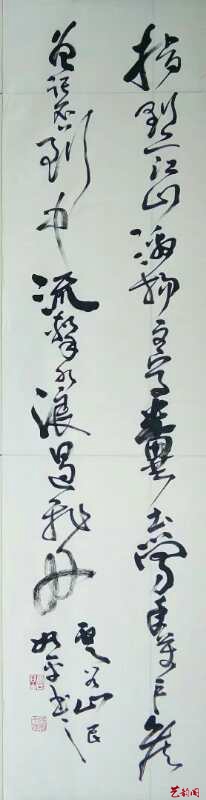 指點江山激揚文字糞土當年萬戶侯
曾記否到中流擊水浪遏飛舟
山民
書
艺韵阁